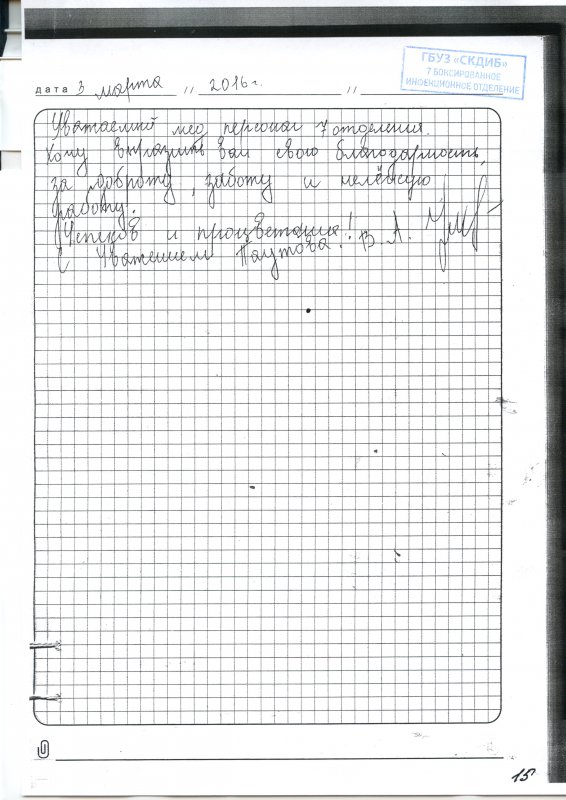 ГБУЗ «СКДИБ»
7 БОКСИРОВАННОЕ
ИНФЕКЦИОННОЕ ОТДЕЛЕНИЕ
дата 3 марта // 2016 г. //
Уважаемый мед персонал 7 отделения.
Хочу выразить вам свою благодарность,
за доброту, заботу и нелёгкую
работу.
Успехов и процветания!
С Уважением Паутова! В. А.
15